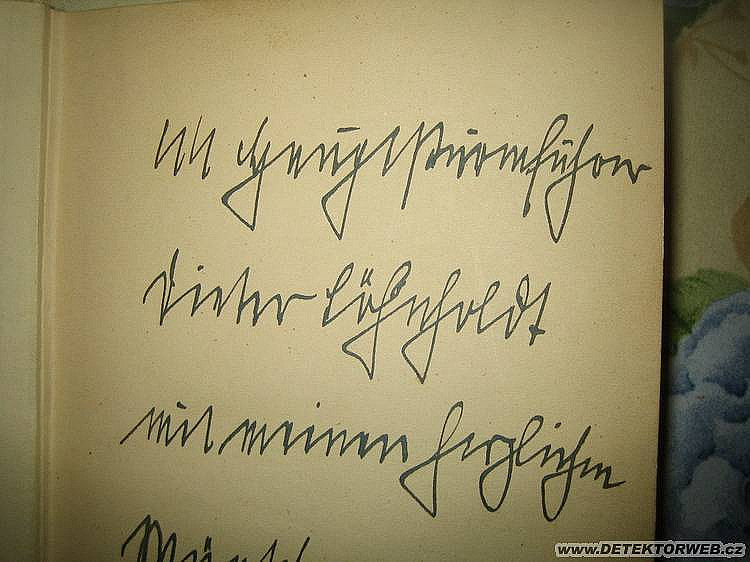 SS Hauptsturmführer
Dieter
mit meinen herzlichen
www.DETEKTORWEB.cz